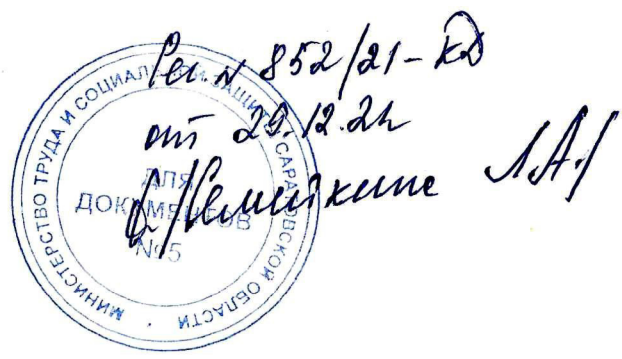 Рег. № 852/21-КД
от 29.12.21г
Л.А./
МИНИСТЕРСТВО ТРУДА И СОЦИАЛЬНОЙ ЗАЩИТЫ САРАТОВСКОЙ ОБЛАСТИ
ДЛЯ
ДОКУМЕНТОВ
№5